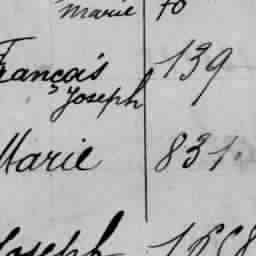 Marie 70
François 139
Joseph
Marie 831.
Joseph